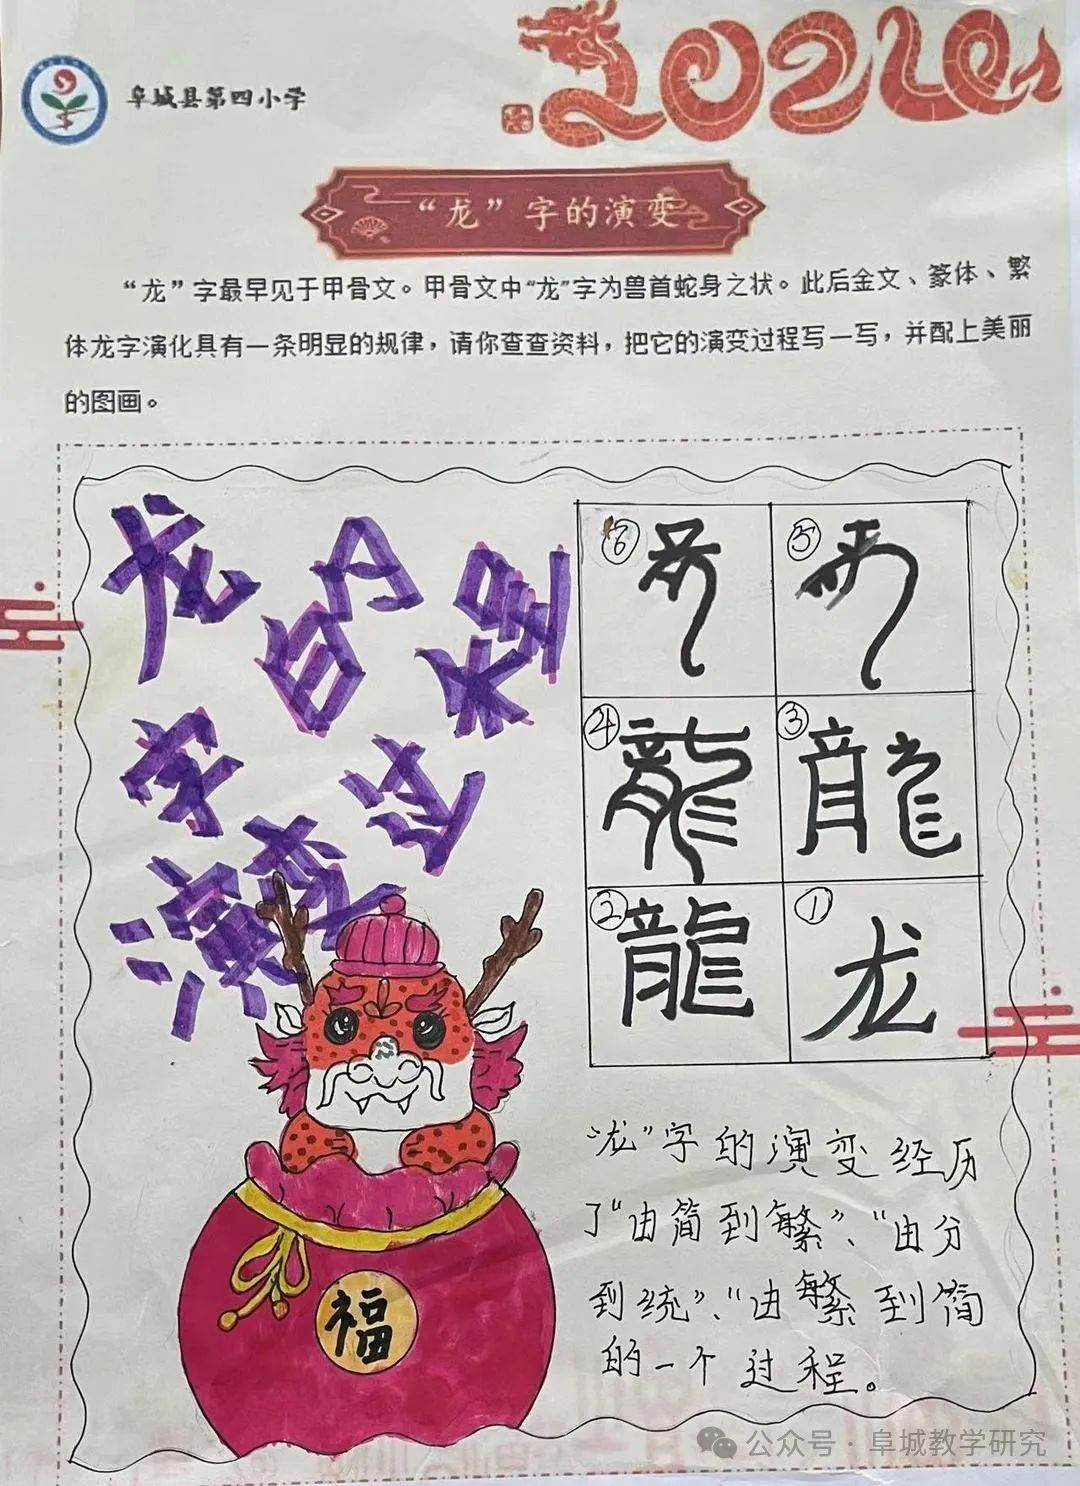 阜城县第四小学
2024
“龙”字的演变
“龙”字最早见于甲骨文。甲骨文中“龙”字为兽首蛇身之状。此后金文、篆体、繁
体龙字演化具有一条明显的规律，请你查查资料，把它的演变过程写一写，并配上美丽
的图画。
龙字的演变过程
⑥
⑤
④ 龍
③ 龍
② 龍
① 龙
“龙”字的演变经历
了“由简到繁”、“由分
到统”、“由繁到简
的一个过程。
福
公众号·阜城教学研究